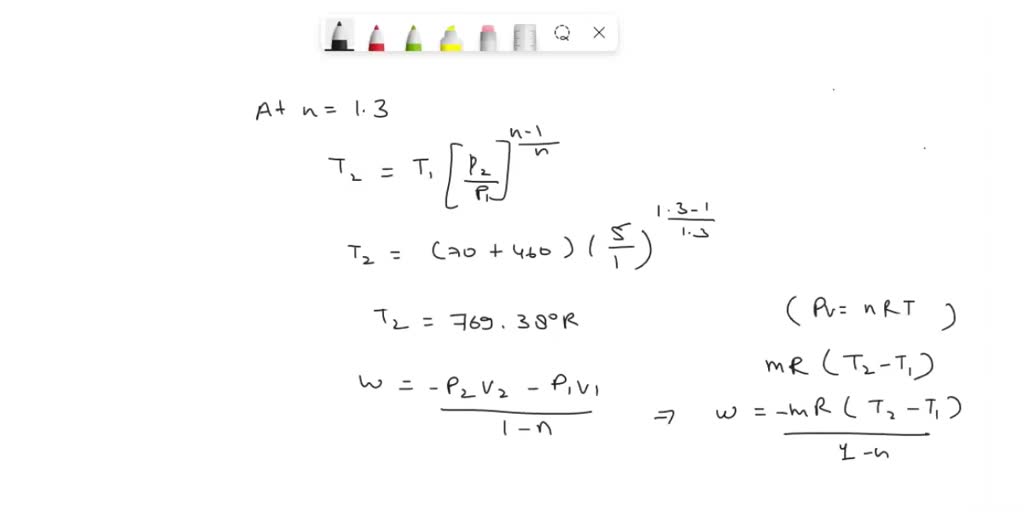 At n = 1.3
T₂ = T₁ [P₂/P₁]^(n-1/n)
T₂ = (70 + 460) (5/1)^(1.3-1/1.3)
T₂ = 769.38°R
(Pv = nRT )
mR (T₂ - T₁)
w = -P₂V₂ - P₁V₁ / 1-n ⇒ w = -mR (T₂ - T₁) / 1-n